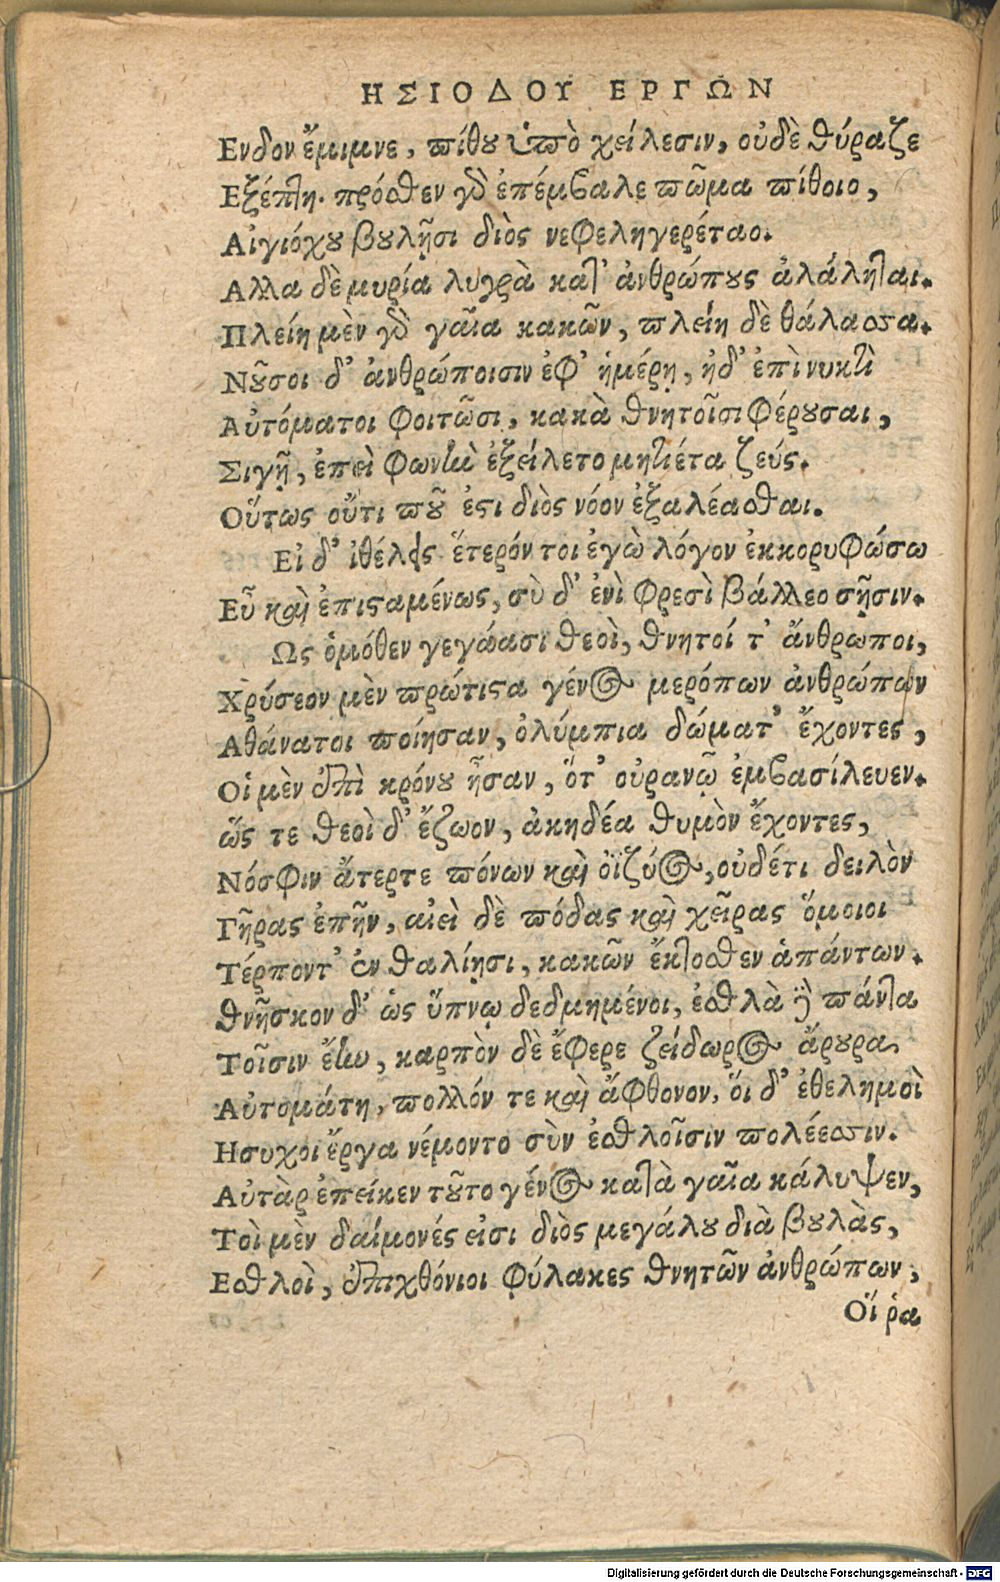 ΗΣΙΟΔΟΥ ΕΡΓΩΝ
Ενδον ἔμιμνε, πίθου ὑπὸ χείλεσιν, οὐδὲ θύραζε
Εξέπτη. πρόσθεν γὰρ ἐπέμβαλε πῶμα πίθοιο,
Αἰγιόχου βουλῇσι διὸς νεφεληγερέταο.
Αλλα δὲ μυρία λυγρὰ κατ' ἀνθρώπους ἀλάληται.
Πλείη μὲν γὰρ γαῖα κακῶν, πλείη δὲ θάλασσα.
Νοῦσοι δ' ἀνθρώποισιν ἐφ' ἡμέρῃ, ἠδ' ἐπὶ νυκτὶ
Αὐτόματοι φοιτῶσι, κακὰ θνητοῖσι φέρουσαι,
Σιγῇ, ἐπεὶ φωνὴν ἐξείλετο μητιέτα ζεύς.
Οὕτως οὔτι ποῦ ἐστι διὸς νόον ἐξαλέασθαι.
Εἰ δ' ἐθέλεις ἕτερόν τοι ἐγὼ λόγον ἐκκορυφώσω
Εὖ καὶ ἐπισταμένως, σὺ δ' ἐνὶ φρεσὶ βάλλεο σῇσιν.
Ως ὁμόθεν γεγάασι θεοὶ, θνητοί τ' ἄνθρωποι,
Χρύσεον μὲν πρώτιστα γένος μερόπων ἀνθρώπων
Αθάνατοι ποίησαν, ὀλύμπια δώματ' ἔχοντες,
Οἱ μὲν ἐπὶ κρόνου ἦσαν, ὅτ' οὐρανῷ ἐμβασίλευεν.
ὥς τε θεοὶ δ' ἔζωον, ἀκηδέα θυμὸν ἔχοντες,
Νόσφιν ἄτερτε πόνων καὶ ὀϊζύος, οὐδέτι δειλὸν
Γῆρας ἐπῆν, αἰεὶ δὲ πόδας καὶ χεῖρας ὅμοιοι
Τέρποντ' ἐν θαλίῃσι, κακῶν ἔκτοσθεν ἁπάντων.
Θνῆσκον δ' ὡς ὕπνῳ δεδμημένοι, ἐσθλὰ δὲ πάντα
Τοῖσιν ἔην, καρπὸν δὲ ἔφερε ζείδωρος ἄρουρα
Αὐτομάτη, πολλόν τε καὶ ἄφθονον, οἵ δ' ἐθελημοὶ
Ησυχοι ἔργα νέμοντο σὺν ἐσθλοῖσιν πολέεσσιν.
Αὐτὰρ ἐπείκεν τοῦτο γένος κατὰ γαῖα κάλυψεν,
Τοὶ μὲν δαίμονές εἰσι διὸς μεγάλου διὰ βουλὰς,
Εσθλοὶ, ἐπιχθόνιοι φύλακες θνητῶν ἀνθρώπων,
Οἵ ῥα
Digitalisierung gefördert durch die Deutsche Forschungsgemeinschaft - DFG